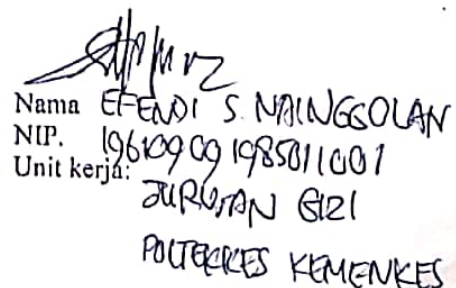 Nama EFENDI S. NAINGGOLAN
NIP. 196109091985011001
Unit kerja:
JURUSAN GIZI
POLTEKKES KEMENKES